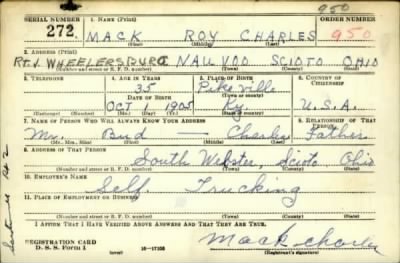 950
SERIAL NUMBER 1. NAME (Print) ORDER NUMBER
272. MACK ROY CHARLES 950
(First) (Middle) (Last)
2. ADDRESS (Print)
RT.1 WHEELERSBURG NAUVOO SCIOTO OHIO
(Number and street or R. F. D. number) (Town) (County) (State)
3. TELEPHONE 4. AGE IN YEARS 5. PLACE OF BIRTH 6. COUNTRY OF CITIZENSHIP
35 Pikeville
DATE OF BIRTH (Town or county)
OCT 1905 Ky. U.S.A.
(Exchange) (Number) (Mo.) (Day) (Yr.) (State or country)
7. NAME OF PERSON WHO WILL ALWAYS KNOW YOUR ADDRESS 8. RELATIONSHIP OF THAT PERSON
Mr. Bud — Charles Father
(Mr., Mrs., Miss) (First) (Middle) (Last)
9. ADDRESS OF THAT PERSON
South Webster, Scioto, Ohio
(Number and street or R. F. D. number) (Town) (County) (State)
10. EMPLOYER'S NAME
Self. Trucking
11. PLACE OF EMPLOYMENT OR BUSINESS
(Number and street or R. F. D. number) (Town) (County) (State)
I AFFIRM THAT I HAVE VERIFIED ABOVE ANSWERS AND THAT THEY ARE TRUE.
REGISTRATION CARD
D. S. S. Form 1 16—17105 Mack Charles
(over) (Registrant's signature)